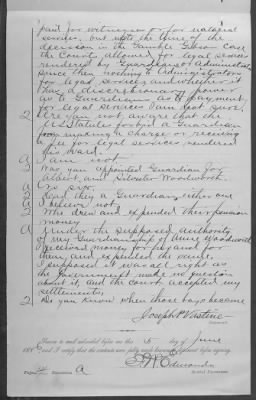 paid for witnesses & for
services, but upto the time of the
decision in the Gamble Gibson case
the Court allowed for legal services
rendered by Guardians or Administrators
since then nothing to Administrators
for legal services, and whether it
has a discretionary power
as to Guardians as to payment
for legal services I am not sure.
Q Are you not aware that the
U.S. Statutes forbid a Guardian
from making a charge or receiving
a fee for legal services rendered
his ward.
A I am not
Q Was you appointed Guardian for
Albert and Silvester Woodworth.
A No sir.
Q Had they a Guardian, either one
A I believe not
Q Who drew and expended their pension
money
A Under the supposed authority
of my Guardianship of Anne Woodworth
I received money for and
them, and expended the same.
I supposed it was all right as
the Government made no question
about it, and the court accepted my
settlements
Q Do you know when those boys became
Joseph P. Vastine
Sworn to and subscribed before me this day of June
188 , and I certify that the contents were fully made known to deponent before signing.
Edmonds
Special Examiner.
Page Deposition A